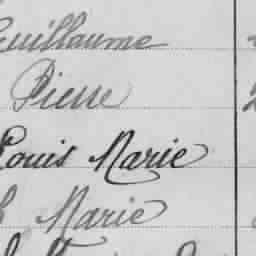 Guillaume
Pierre
Louis Marie
Marie